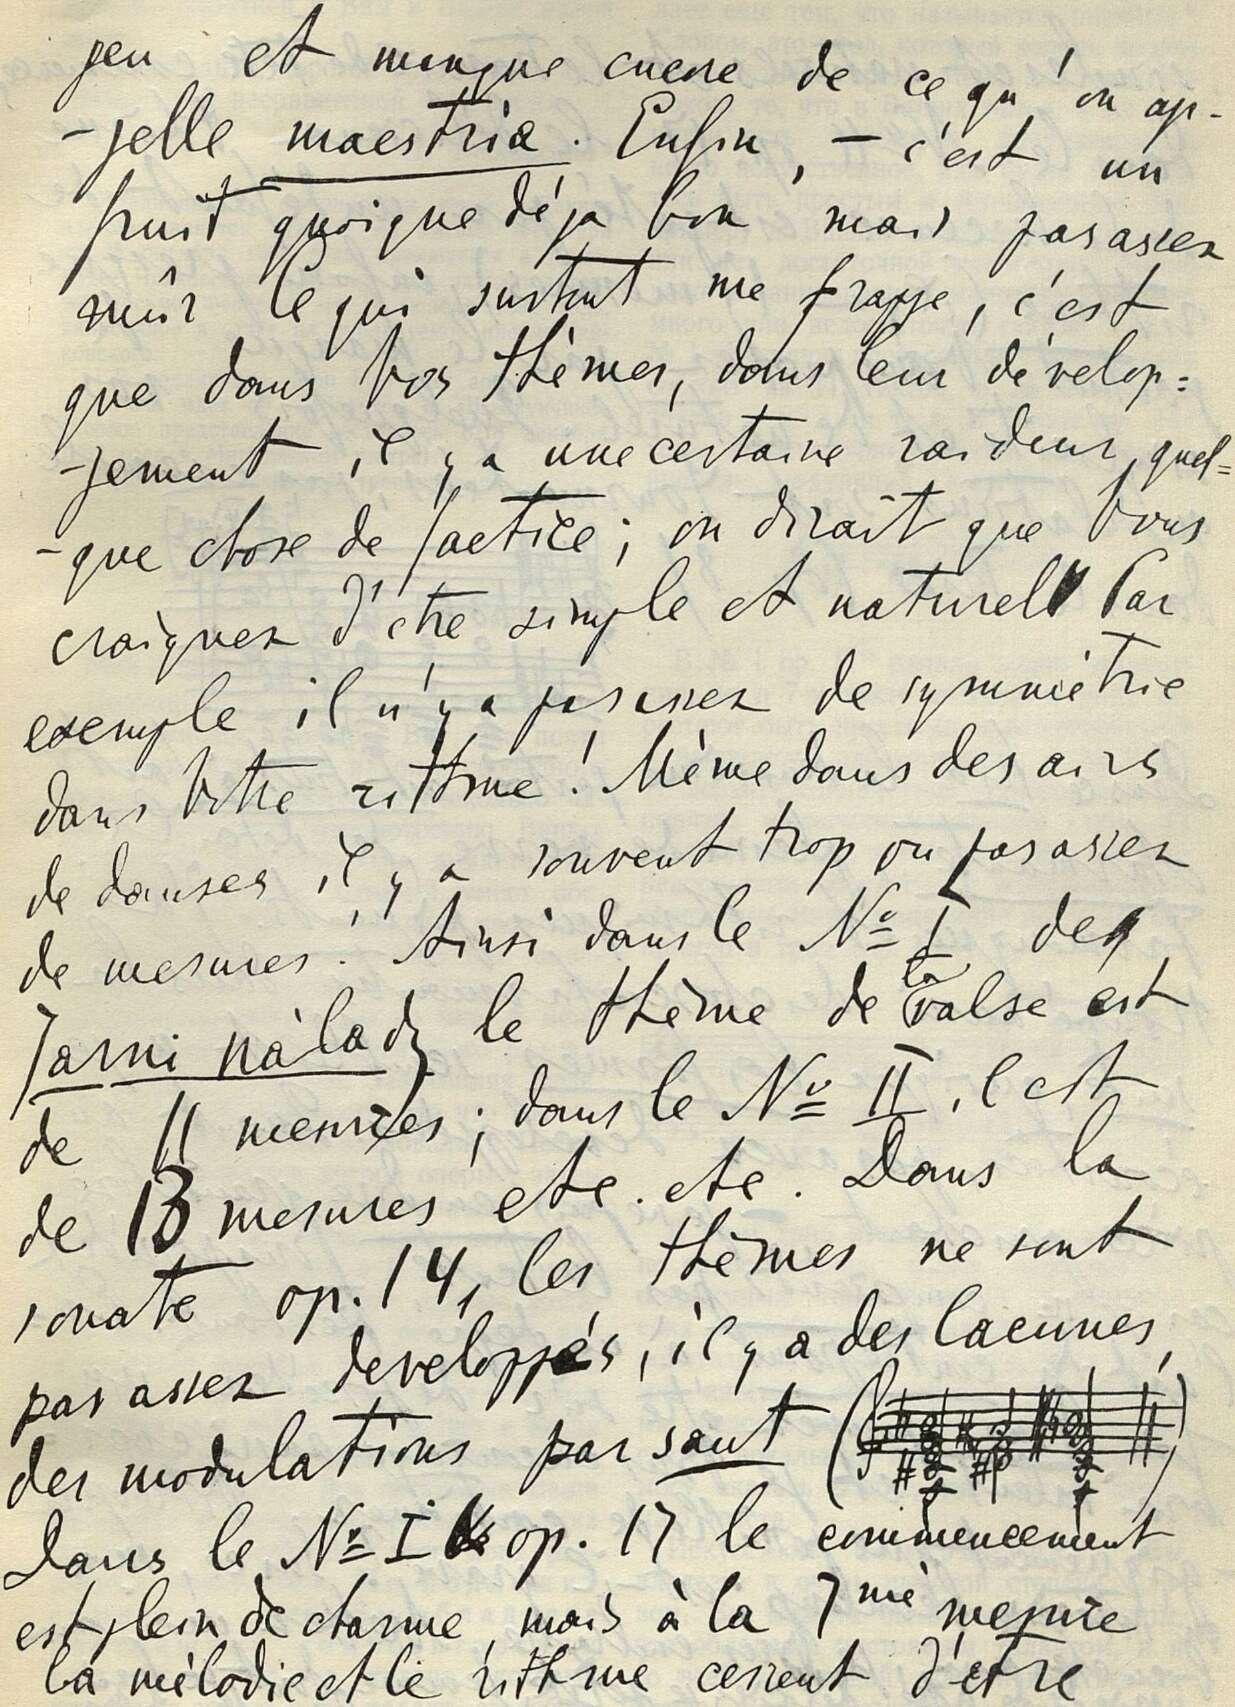 peu et manque encore de ce qu'on ap-
-pelle maestria. Enfin, – c'est un
fruit quoique déja bon mais pas assez
mûr Ce qui surtout me frappe, c'est
que dans vos thèmes, dans leur dévelop=
-pement il y a une certaine raideur, quel=
-que chose de factice; on dirait que vous
craignez d'être simple et naturel Par
exemple il n'y a pas assez de symmétrie
dans votre rithme! Même dans des airs
de danses il y a souvent trop ou pas assez
de mesures! Ainsi dans le Nº I des
Jarni nálady le thème de la valse est
de 11 mesures; dans le Nº II il est
de 13 mesures etc. etc. Dans la
sonate op. 14, les thèmes ne sont
pas assez developpés, il y a des lacunes,
des modulations par saut (
Dans le Nº I op. 17 le commencement
est plein de charme, mais à la 7me mesure
la mélodie et le rithme cessent d'être